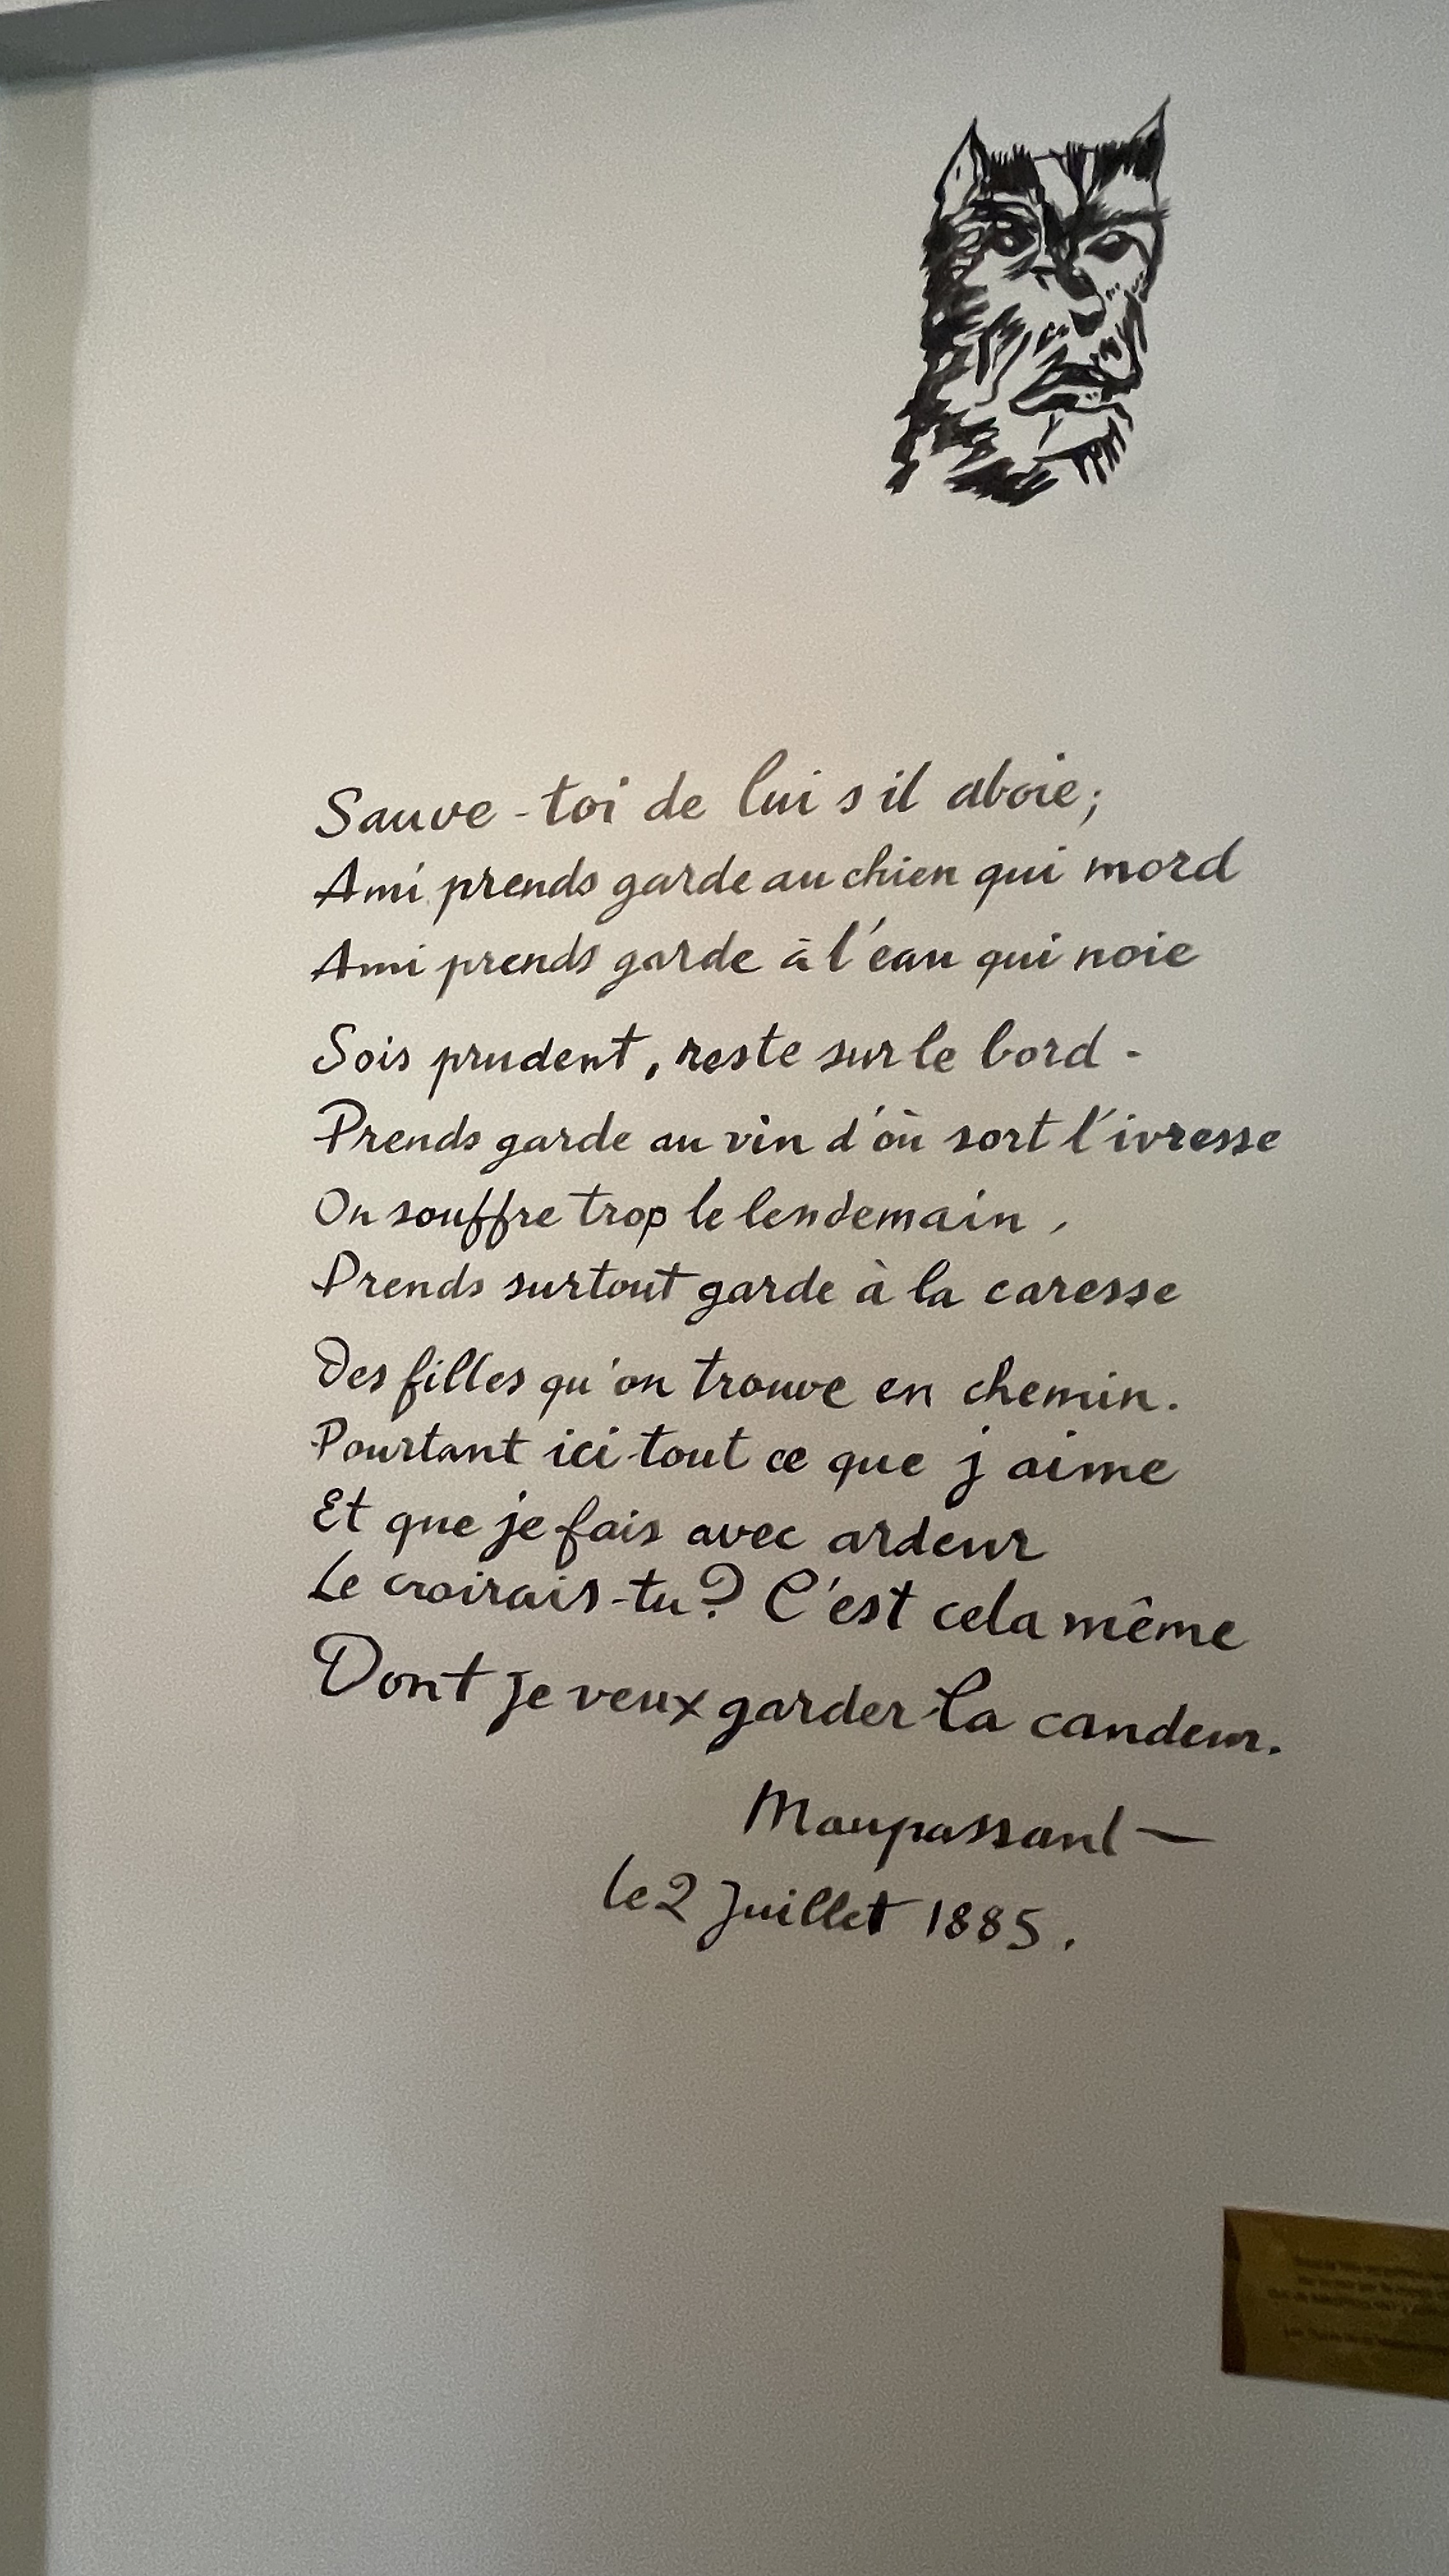 Sauve-toi de lui s il aboie;
Ami prends garde au chien qui mord
Ami prends garde à l'eau qui noie
Sois prudent, reste sur le bord -
Prends garde au vin d'où sort l'ivresse
On souffre trop le lendemain,
Prends surtout garde à la caresse
Des filles qu'on trouve en chemin.
Pourtant ici tout ce que j aime
Et que je fais avec ardeur
Le croirais-tu? C'est cela même
Dont je veux garder la candeur.
Maupassant —
le 2 Juillet 1885.